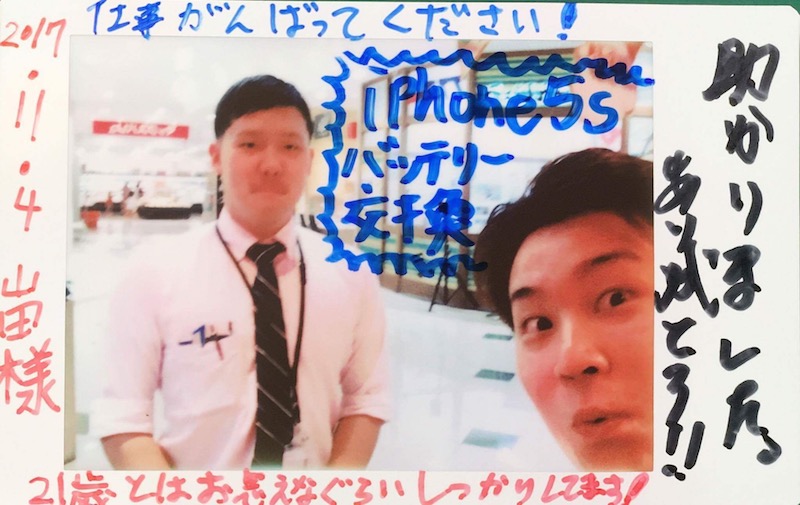 仕事がんばってください！
2017.11.4 山田様
iPhone5s
バッテリー
交換
助かりました
ありがとう!!
21歳とはお思えなぐらいしっかりしてます！